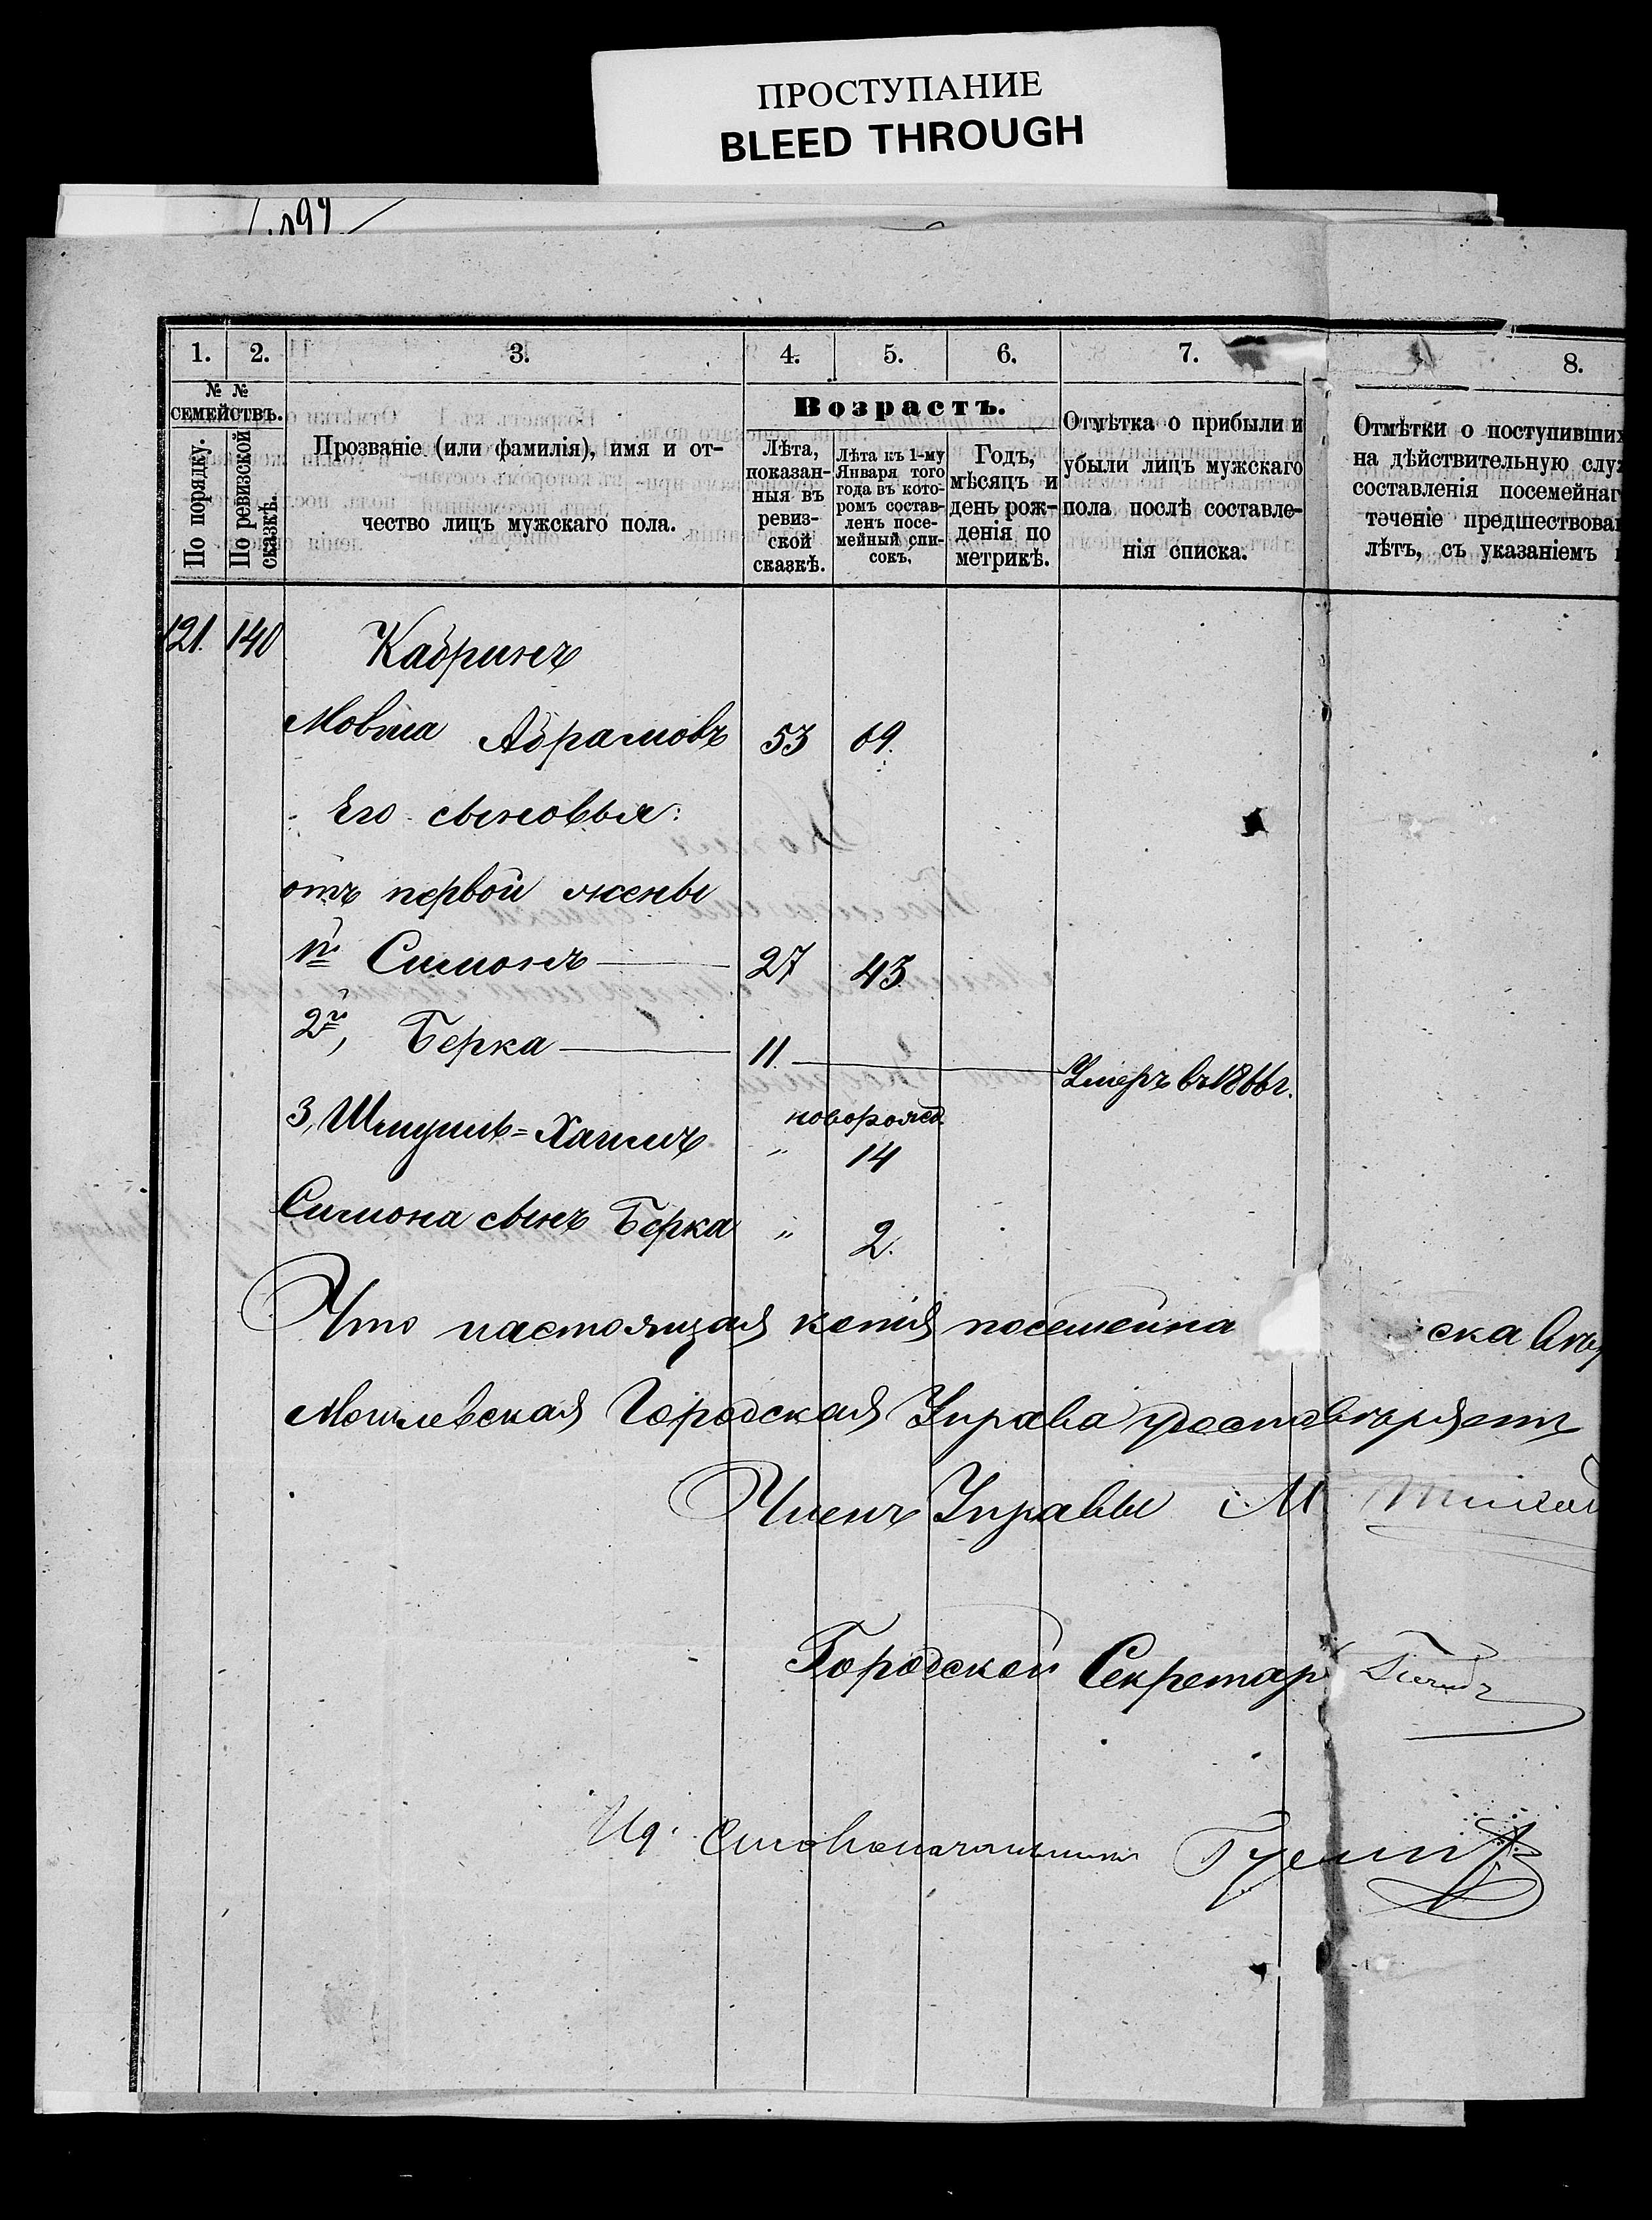 ПРОСТУПАНИЕ
BLEED THROUGH
1. 2. 3. 4. 5. 6. 7. 8.
№ №
семействъ.
По порядку.
По ревизской сказкѣ.
Прозваніе (или фамилія), имя и от-
чество лицъ мужскаго пола.
Возрастъ.
Лѣта,
показан-
ныя въ
ревиз-
ской
сказкѣ.
Лѣта къ 1-му
Января того
года въ кото-
ромъ состав-
ленъ посе-
мейный спи-
сокъ.
Годъ,
мѣсяцъ и
день рож-
денія по
метрикѣ.
Отмѣтка о прибыли и
убыли лицъ мужскаго
пола послѣ составле-
нія списка.
Отмѣтки о поступивших
на дѣйствительную служ
составленія посемейнаг
теченіе предшествова
лѣтъ, съ указаніемъ
121. 140 Кабринъ
Мовша Абрамовъ 53 69.
Его сыновья:
отъ первой жены
1й Симонъ 27 43
2й, Берка 11 Умеръ въ 1866 г.
3, Шмуйль=Хаимъ новорожд. 14
Симона сынъ Берка " 2.
Что настоящая копія посемейна ска вѣр
Могилевская Городская Управа удостовѣряетъ
Членъ Управы М
Городской Секретар
Ид. Столоначальника